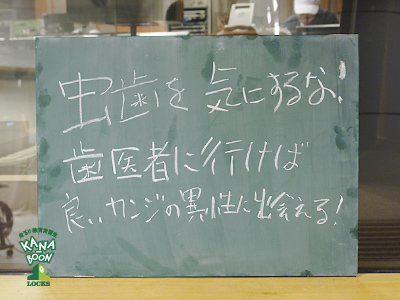 虫歯を気にするな!
歯医者に行けば
良いカンジの異性に出会える!
KANA-
BOON
LOCKS